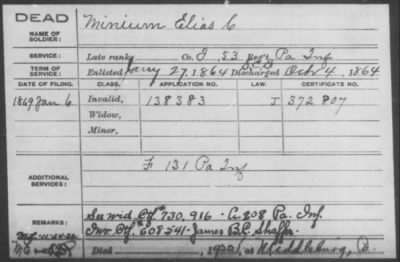 DEAD
NAME OF SOLDIER: Minium Elias C
SERVICE: Late rank, Co. I, 53 Reg't Pa Inf
TERM OF SERVICE: Enlisted 27, 1864 Discharged Oct 4, 1864
DATE OF FILING. CLASS. APPLICATION NO. LAW. CERTIFICATE NO.
1869 Jan 6 Invalid, 138383 I 372 807
Widow,
Minor,
ADDITIONAL SERVICES: F 131 Pa Inf
REMARKS: See wid. Ctf. 730,916 - C. 208 Pa. Inf.
Inv. Ctf. 608541 - James B.C. Shaffer.
Died 1920, at Middleburg, Pa.